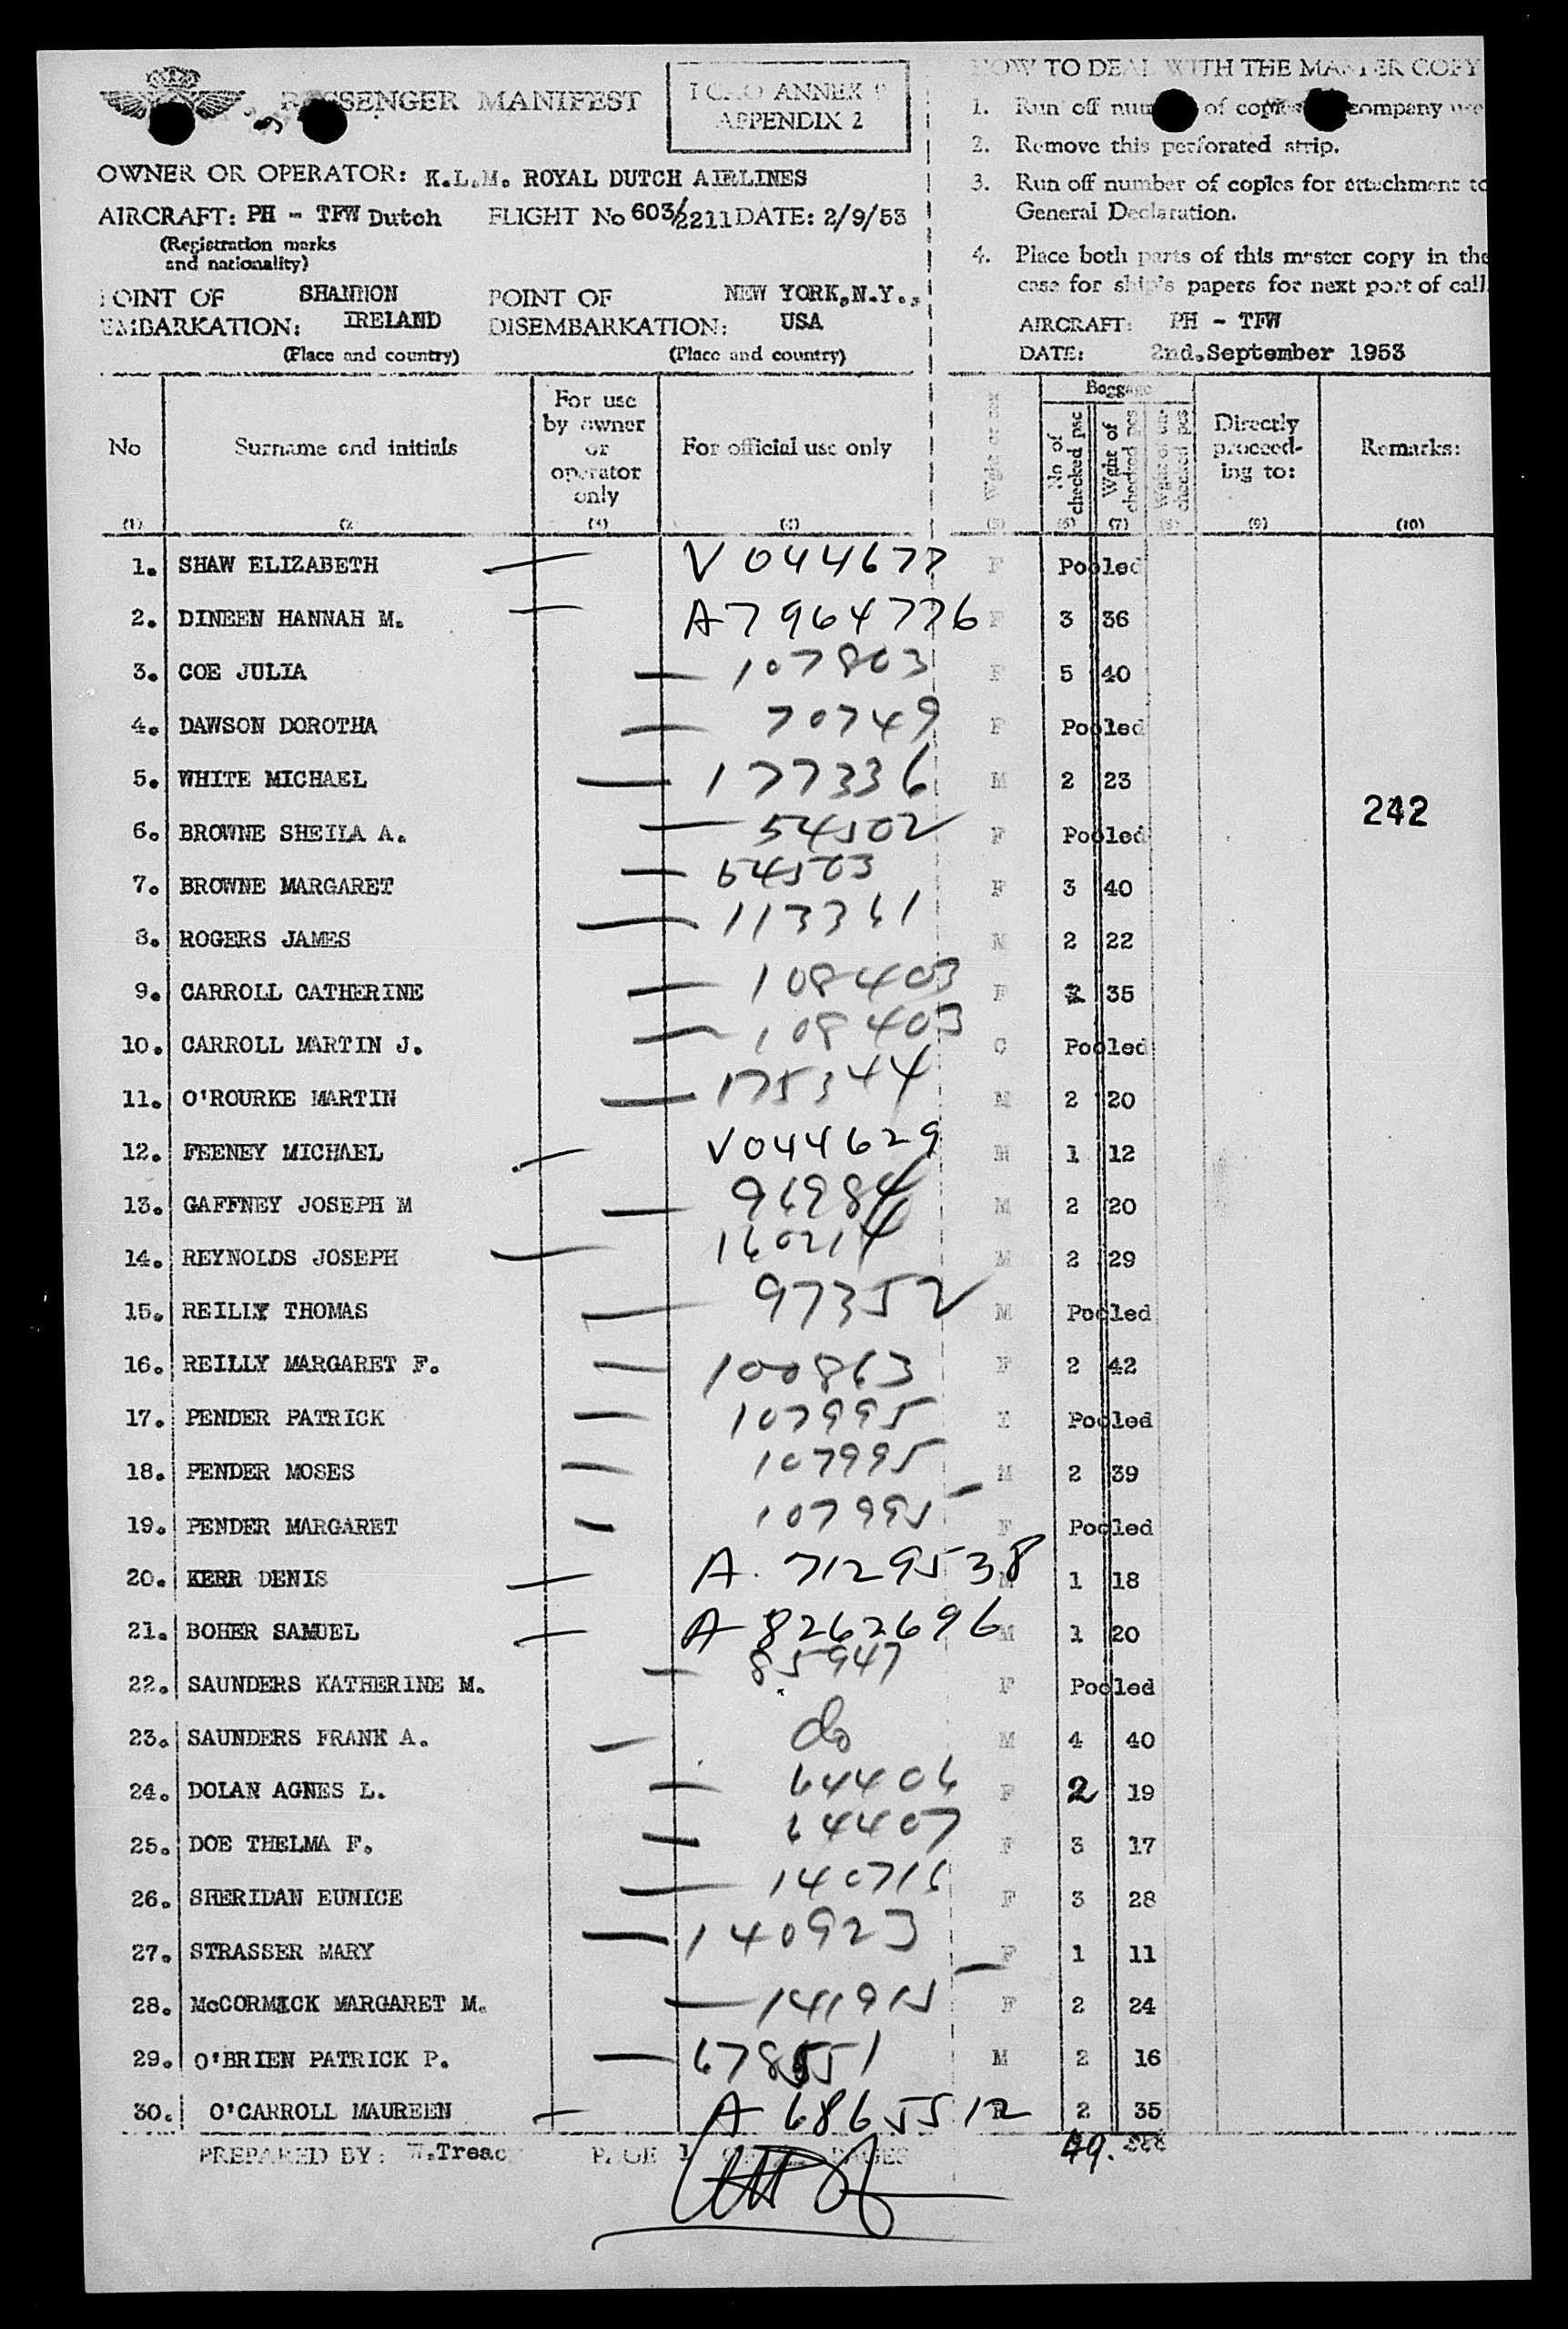 PASSENGER MANIFEST
ICAO ANNEX 9
APPENDIX 2
OWNER OR OPERATOR: K.L.M. ROYAL DUTCH AIRLINES
AIRCRAFT: PH - TFW Dutch FLIGHT No 603/2211 DATE: 2/9/53
(Registration marks
and nationality)
POINT OF SHANNON POINT OF NEW YORK,N.Y.,
EMBARKATION: IRELAND DISEMBARKATION: USA
(Place and country) (Place and country)
HOW TO DEAL WITH THE MASTER COPY
1. Run off number of copies company use
2. Remove this perforated strip.
3. Run off number of copies for attachment to
General Declaration.
4. Place both parts of this master copy in the
case for ship's papers for next port of call.
AIRCRAFT: PH - TFW
DATE: 2nd.September 1953
No Surname and initials For use by owner or operator only For official use only Baggage No of checked psc Wght of checked pcs Directly proceeding to: Remarks:
(1) (2 (4) (5) (6) (7) (8) (9) (10)
1. SHAW ELIZABETH V 044677 F Pooled
2. DINEEN HANNAH M. A7964776 F 3 36
3. COE JULIA 107803 F 5 40
4. DAWSON DOROTHA 70749 F Pooled
5. WHITE MICHAEL 177336 M 2 23
242
6. BROWNE SHEILA A. 54502 F Pooled
7. BROWNE MARGARET 64503 F 3 40
8. ROGERS JAMES 113361 M 2 22
9. CARROLL CATHERINE 108403 F 35
10. CARROLL MARTIN J. 108403 C Pooled
11. O'ROURKE MARTIN 175344 M 2 20
12. FEENEY MICHAEL V044629 M 1 12
13. GAFFNEY JOSEPH M 96984 M 2 20
14. REYNOLDS JOSEPH 160214 M 2 29
15. REILLY THOMAS 97352 M Pooled
16. REILLY MARGARET F. 100863 F 2 42
17. PENDER PATRICK 107995 Pooled
18. PENDER MOSES 107995 M 2 39
19. PENDER MARGARET 107995 F Pooled
20. KERR DENIS A. 7129538 M 1 18
21. BOHER SAMUEL A 8262696 M 1 20
22. SAUNDERS KATHERINE M. 85947 F Pooled
23. SAUNDERS FRANK A. do M 4 40
24. DOLAN AGNES L. 64406 F 2 19
25. DOE THELMA F. 64407 F 3 17
26. SHERIDAN EUNICE 140716 F 3 28
27. STRASSER MARY 140923 F 1 11
28. McCORMICK MARGARET M. 141915 F 2 24
29. O'BRIEN PATRICK P. 678551 M 2 16
30. O'CARROLL MAUREEN A 6865512 F 2 35
49. 588
PREPARED BY: W.Treacy PAGE 1 OF PAGES